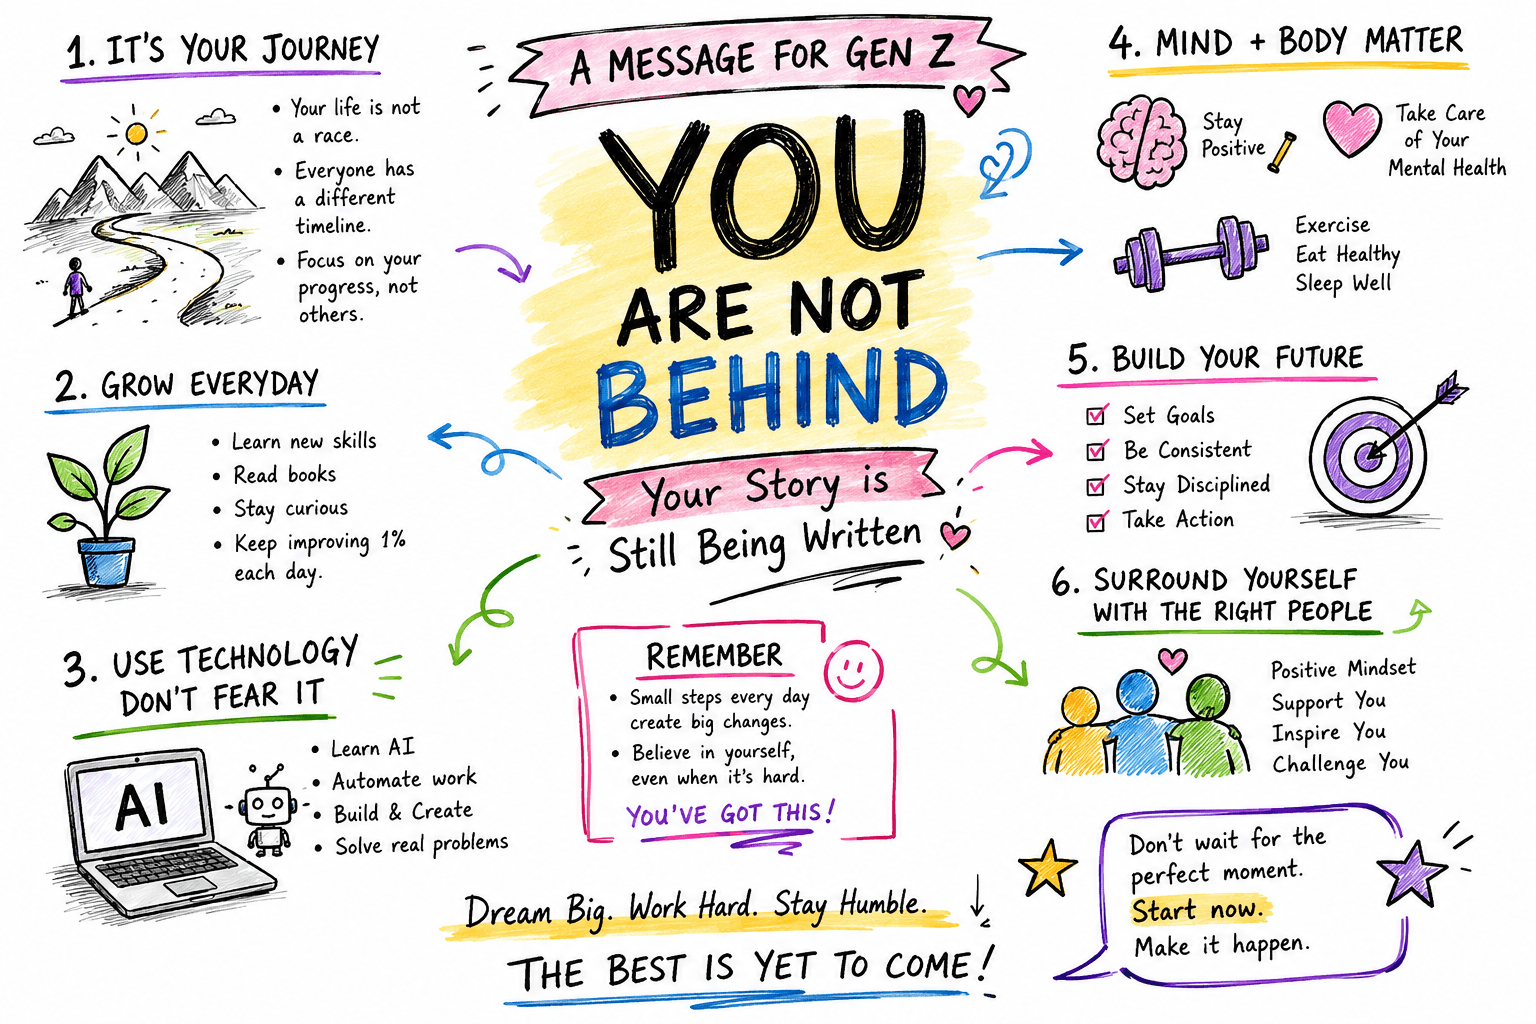 A MESSAGE FOR GEN Z
YOU
ARE NOT
BEHIND
Your Story is
Still Being Written
1. IT'S YOUR JOURNEY
• Your life is not
a race.
• Everyone has
a different
timeline.
• Focus on your
progress, not
others.
2. GROW EVERYDAY
• Learn new skills
• Read books
• Stay curious
• Keep improving 1%
each day.
3. USE TECHNOLOGY
DON'T FEAR IT
AI
• Learn AI
• Automate work
• Build & Create
• Solve real problems
4. MIND + BODY MATTER
Stay
Positive
Take Care
of Your
Mental Health
Exercise
Eat Healthy
Sleep Well
5. BUILD YOUR FUTURE
Set Goals
Be Consistent
Stay Disciplined
Take Action
6. SURROUND YOURSELF
WITH THE RIGHT PEOPLE
Positive Mindset
Support You
Inspire You
Challenge You
REMEMBER
• Small steps every day
create big changes.
• Believe in yourself,
even when it's hard.
YOU'VE GOT THIS!
Don't wait for the
perfect moment.
Start now.
Make it happen.
Dream Big. Work Hard. Stay Humble.
THE BEST IS YET TO COME!